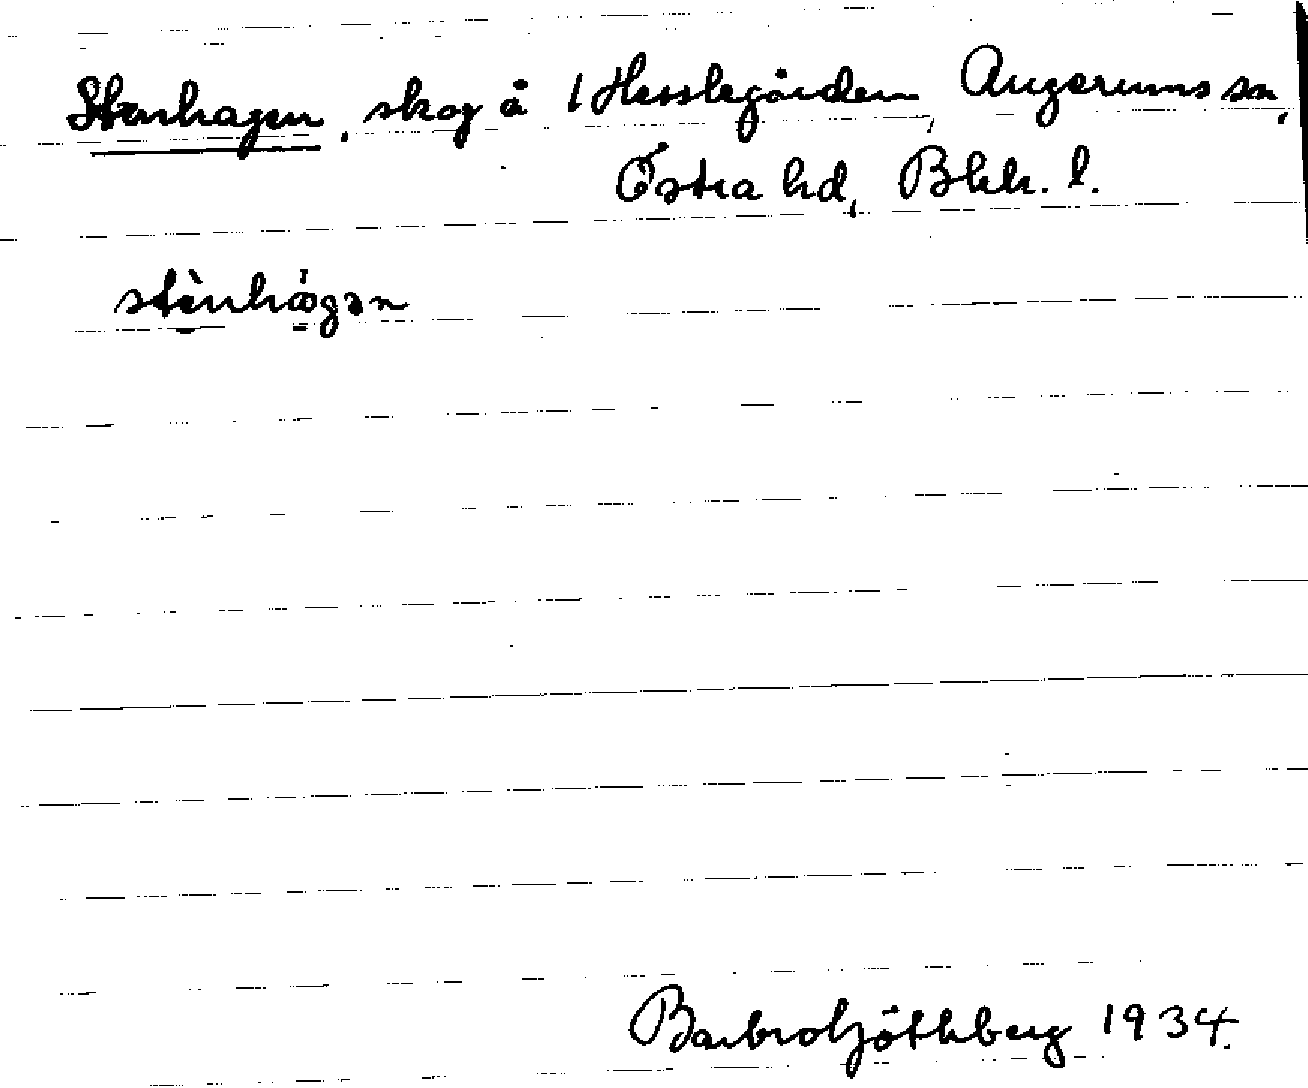 Stenhagen, skog å 1 Hesslegården, Augerums sn,
Östra hd, Blek. l.
stènhágən
Barbro Göthberg 1934.